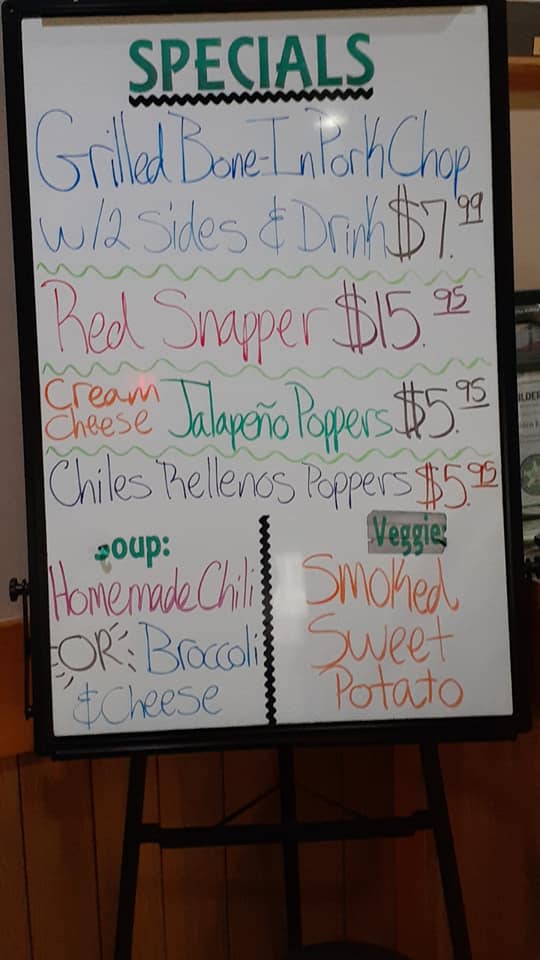 SPECIALS
Grilled Bone-In Pork Chop
w/2 Sides & Drink $7.99
Red Snapper $15.95
Cream Cheese Jalapeño Poppers $5.95
Chiles Rellenos Poppers $5.95
oup:
Homemade Chili
OR: Broccoli
& Cheese
Veggie:
Smoked
Sweet
Potato